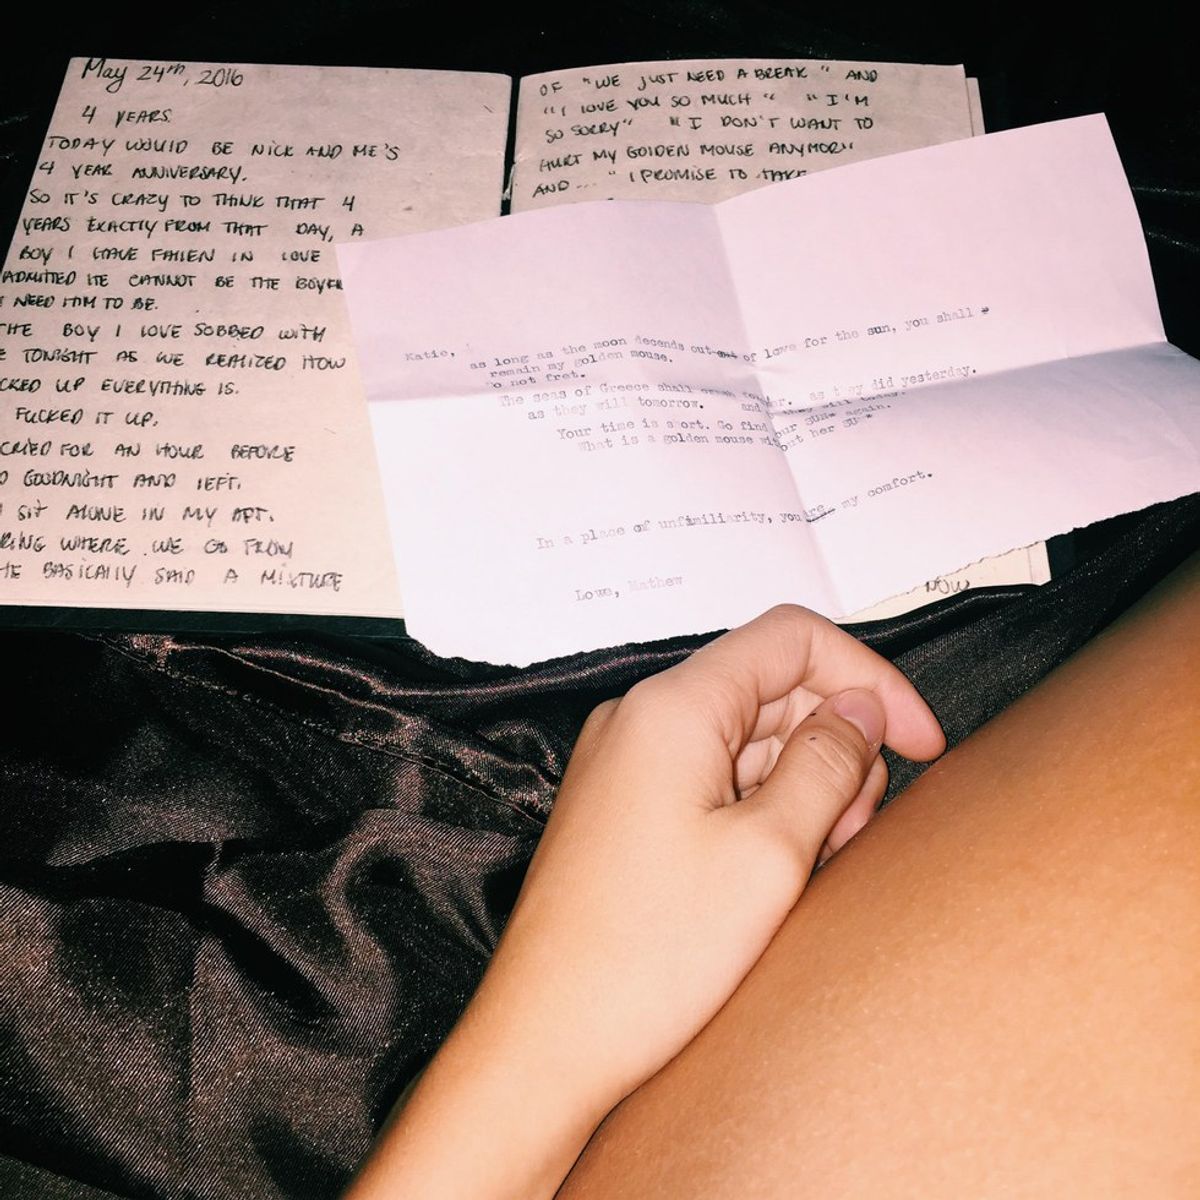 May 24th, 2016
4 YEARS.
TODAY WOULD BE NICK AND ME'S
4 YEAR ANNIVERSARY.
SO IT'S CRAZY TO THINK THAT 4
YEARS EXACTLY FROM THAT DAY, A
BOY I HAVE FALLEN IN LOVE
ADMITTED HE CANNOT BE THE
NEED HIM TO BE.
THE BOY I LOVE SOBBED WITH
TONIGHT AS WE REALIZED HOW
UP EVERYTHING IS.
FUCKED IT UP.
CRIED FOR AN HOUR BEFORE
GOODNIGHT AND LEFT.
I SIT ALONE IN MY APT.
WHERE WE GO FROM
HE BASICALLY SAID A MIXTURE
OF "WE JUST NEED A BREAK" AND
"I LOVE YOU SO MUCH" "I'M
SO SORRY" "I DON'T WANT TO
HURT MY GOLDEN MOUSE ANYMORE"
AND... "I PROMISE TO TAKE
Katie,
as long as the moon decends out of love for the sun, you shall
remain my golden mouse.
Do not fret.
The seas of Greece shall as they did yesterday.
as they will tomorrow. and they will today.
Your time is short. Go find your sun again.
What is a golden mouse without her sun
In a place of unfimiliarity, you are my comfort.
Love, Mathew
NOW